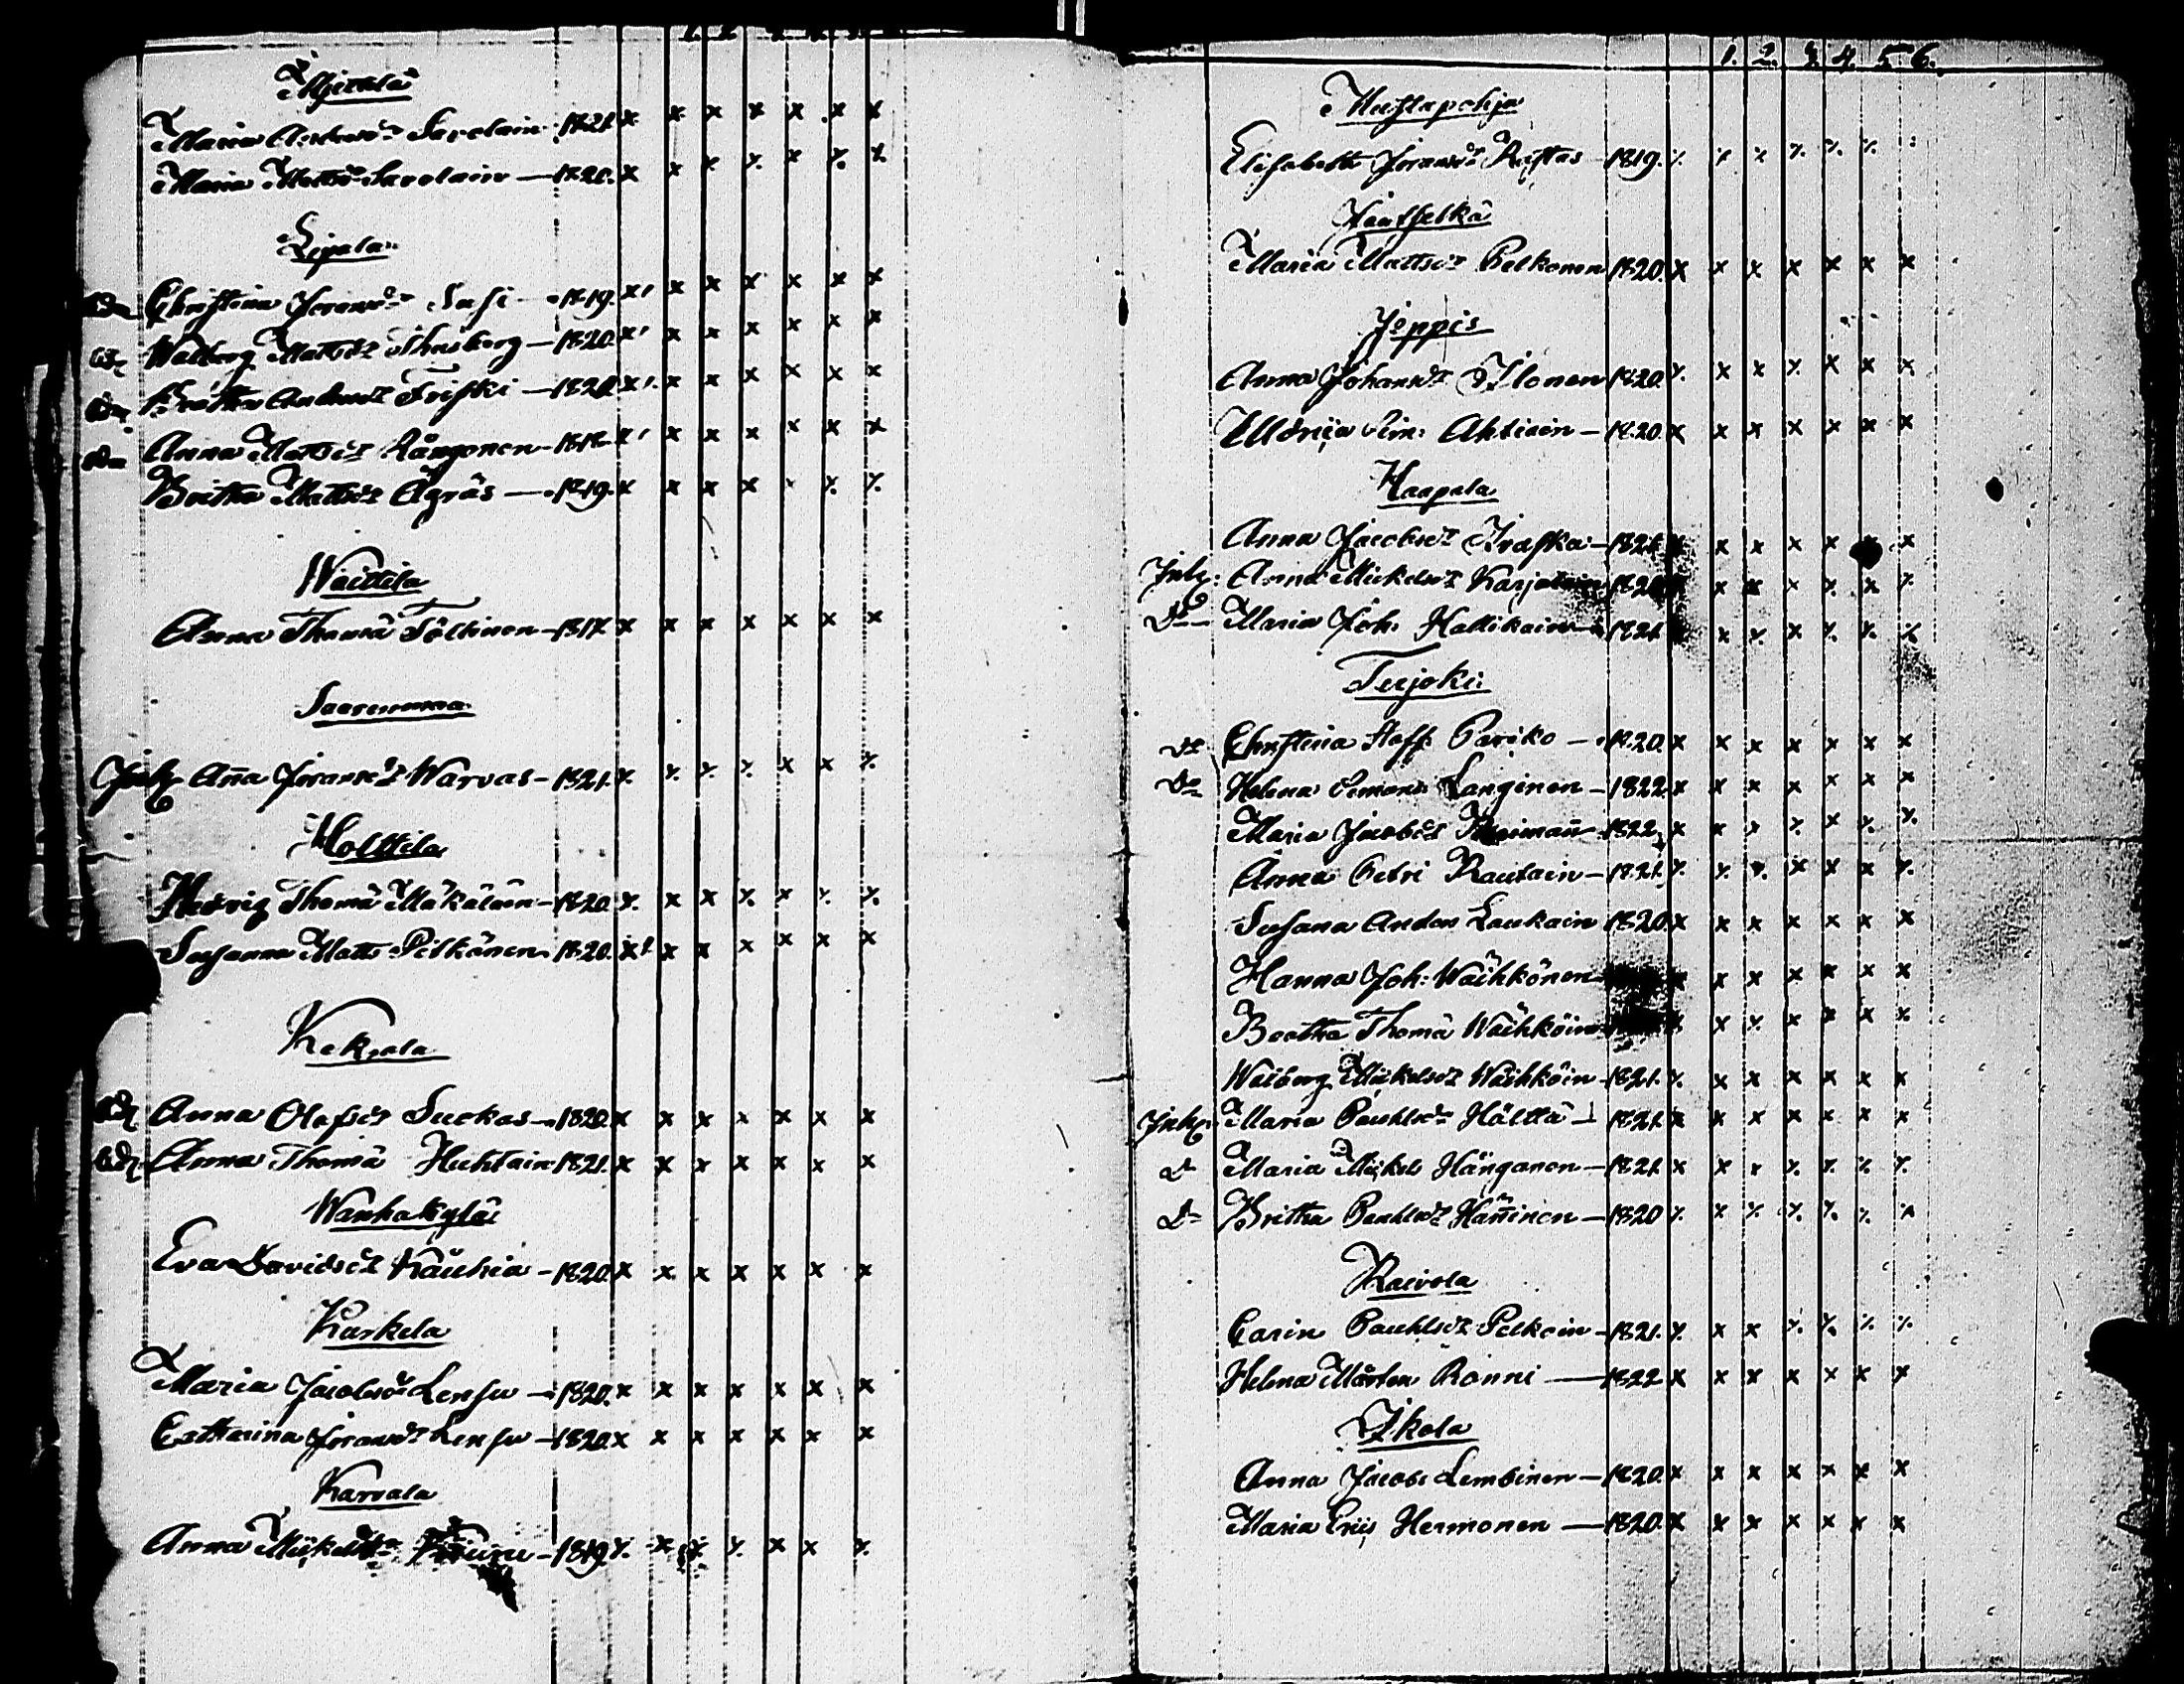 Maria Andersdr Savolain 1821 x x x x x x x
Maria Mattsdr Savolain — 1820. x x x ⁒ x ⁒ ⁒
Lipala
Christina Jöransdr Susi — 1819. x x x x x x x
Walborg Mattsdr — 1820. x x x x x x x
Britha Andersdr Friski — 1820 x x x x x x x
Anna Mattsdr — 1818 x x x x x x x
Britha Mattsdr Ägräs — 1819. x x x x x ⁒ ⁒
Waittila
Anna Thomä Töltinen — 1818 x x x x x x x
Saarenmaa
Inh. Aña Jöransdr Warvas — 1821. ⁒ ⁒ ⁒ ⁒ x x ⁒
Holttila
Hedvig Thomä Mäkäläin — 1820 ⁒ x x ⁒ x ⁒ ⁒
Susanna Matts Pilkänen 1820. x x x x x x x
Kekrola
Anna Olofsdr Suckas — 1820 x x x x x x x
Anna Thomä Huhtain 1821. x x x x x x x
Wanhakylä
Eva Davidsdr Käuhia — 1820 x x x x x x x
Karkela
Maria Jacobsdr Lensu — 1820. x x x x x x x
Catharina Jöransdr Lensu — 1820 x x x x x x x
Karvala
Anna Mickelsdr — 1819 ⁒ x ⁒ ⁒ x x ⁒
1. 2. 3. 4. 5. 6.
Mustapohja
Elisabetha Jöransdr Rastas — 1819. ⁒ ⁒ x ⁒ ⁒ ⁒
Jautselkä
Maria Mattsdr Pelkonen 1820. x x x x x x x
Joppis
Anna Johansdr Ilonen 1820. ⁒ x x ⁒ x x x
Uldrica Sim: Ahtiain — 1820 x x x x x x x
Haapala
Anna Jacobsdr Iraska — 1821 x x x x x x
Inh: Anna Mickelsdr Karjalain 1820 x x x ⁒ x ⁒
Do Maria Joh. Hallikain 1821 x ⁒ x ⁒ ⁒ ⁒
Terjoki
Do Christina Staff. Pariko — 1820. x x x x x x x
Do Helena Simons Langinen — 1822 x x x x x x x
Maria Jacobsd 1822 x x x ⁒ x ⁒ ⁒
Anna Petri Rautain — 1821. ⁒ ⁒ ⁒ x x x ⁒
Susana Anders Laukain 1820. x x x x x x x
Hanna Joh: Wäihkönen x x x x x x x
Beatha Thomä Wäihköin x ⁒ x x x x
Walborg Mickelsdr Wäihköin — 1821. ⁒ x x x x x x
Inh. Maria Pauhlsdr Hälttä — 1821. x x x x x x x
Do Maria Mickels Hänganen — 1821. x x x ⁒ ⁒ ⁒ ⁒
Do Britha Pauhlsdr Häñinen — 1820 ⁒ x ⁒ ⁒ ⁒ ⁒ x
Raivola
Carin Pauhlsdr Pelkoin — 1821. ⁒ x x ⁒ ⁒ ⁒ ⁒
Helena Mårten Ronni — 1822 x x x x x x x
Ikola
Anna Jacobs Lembinen — 1820. x x x x x x x
Maria Eriis Hermonen — 1820. x x x x x x x